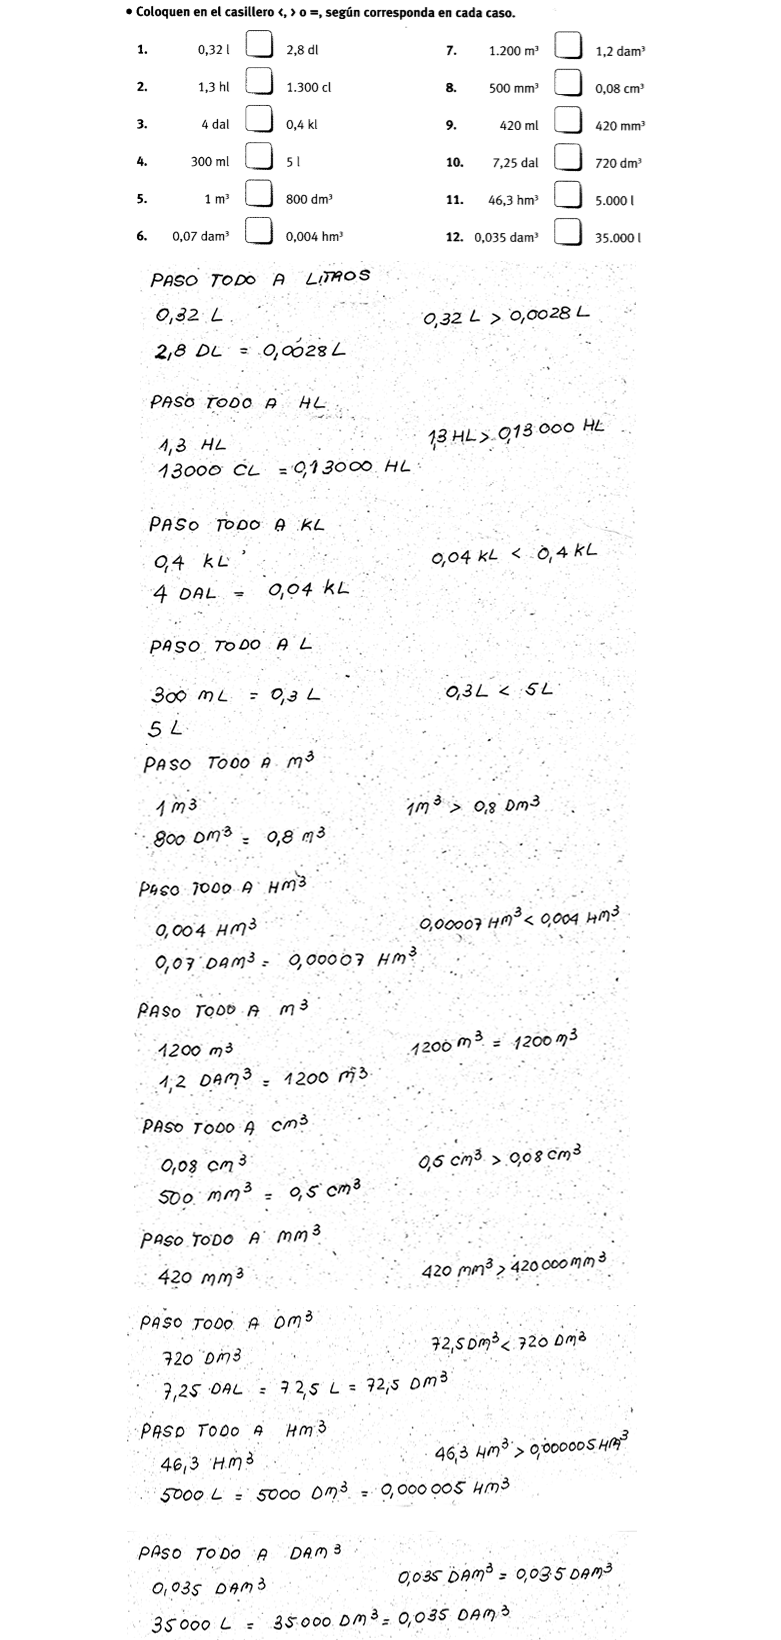 • Coloquen en el casillero <, > o =, según corresponda en cada caso.
1. 0,32 l 2,8 dl
2. 1,3 hl 1.300 cl
3. 4 dal 0,4 kl
4. 300 ml 5 l
5. 1 m³ 800 dm³
6. 0,07 dam³ 0,004 hm³
7. 1.200 m³ 1,2 dam³
8. 500 mm³ 0,08 cm³
9. 420 ml 420 mm³
10. 7,25 dal 720 dm³
11. 46,3 hm³ 5.000 l
12. 0,035 dam³ 35.000 l
PASO TODO A LITROS
0,32 L
0,32 L > 0,0028 L
2,8 DL = 0,0028 L
PASO TODO A HL
1,3 HL
1,3 HL > 0,13000 HL
13000 CL = 0,13000 HL
PASO TODO A KL
0,4 KL
0,04 KL < 0,4 KL
4 DAL = 0,04 KL
PASO TODO A L
300 mL = 0,3 L
0,3 L < 5 L
5 L
PASO TODO A m³
1 m³
1m³ > 0,8 Dm³
800 Dm³ = 0,8 m³
PASO TODO A Hm³
0,004 Hm³
0,00007 Hm³ < 0,004 Hm³
0,07 DAm³ = 0,00007 Hm³
PASO TODO A m³
1200 m³
1200 m³ = 1200 m³
1,2 DAm³ = 1200 m³
PASO TODO A cm³
0,08 cm³
0,5 cm³ > 0,08 cm³
500 mm³ = 0,5 cm³
PASO TODO A mm³
420 mm³
420 mm³ > 420000 mm³
PASO TODO A Dm³
720 Dm³
72,5 Dm³ < 720 Dm³
7,25 DAL = 72,5 L = 72,5 Dm³
PASO TODO A Hm³
46,3 Hm³
46,3 Hm³ > 0,000005 Hm³
5000 L = 5000 Dm³ = 0,000005 Hm³
PASO TODO A DAm³
0,035 DAm³
0,035 DAm³ = 0,035 DAm³
35000 L = 35000 Dm³ = 0,035 DAm³